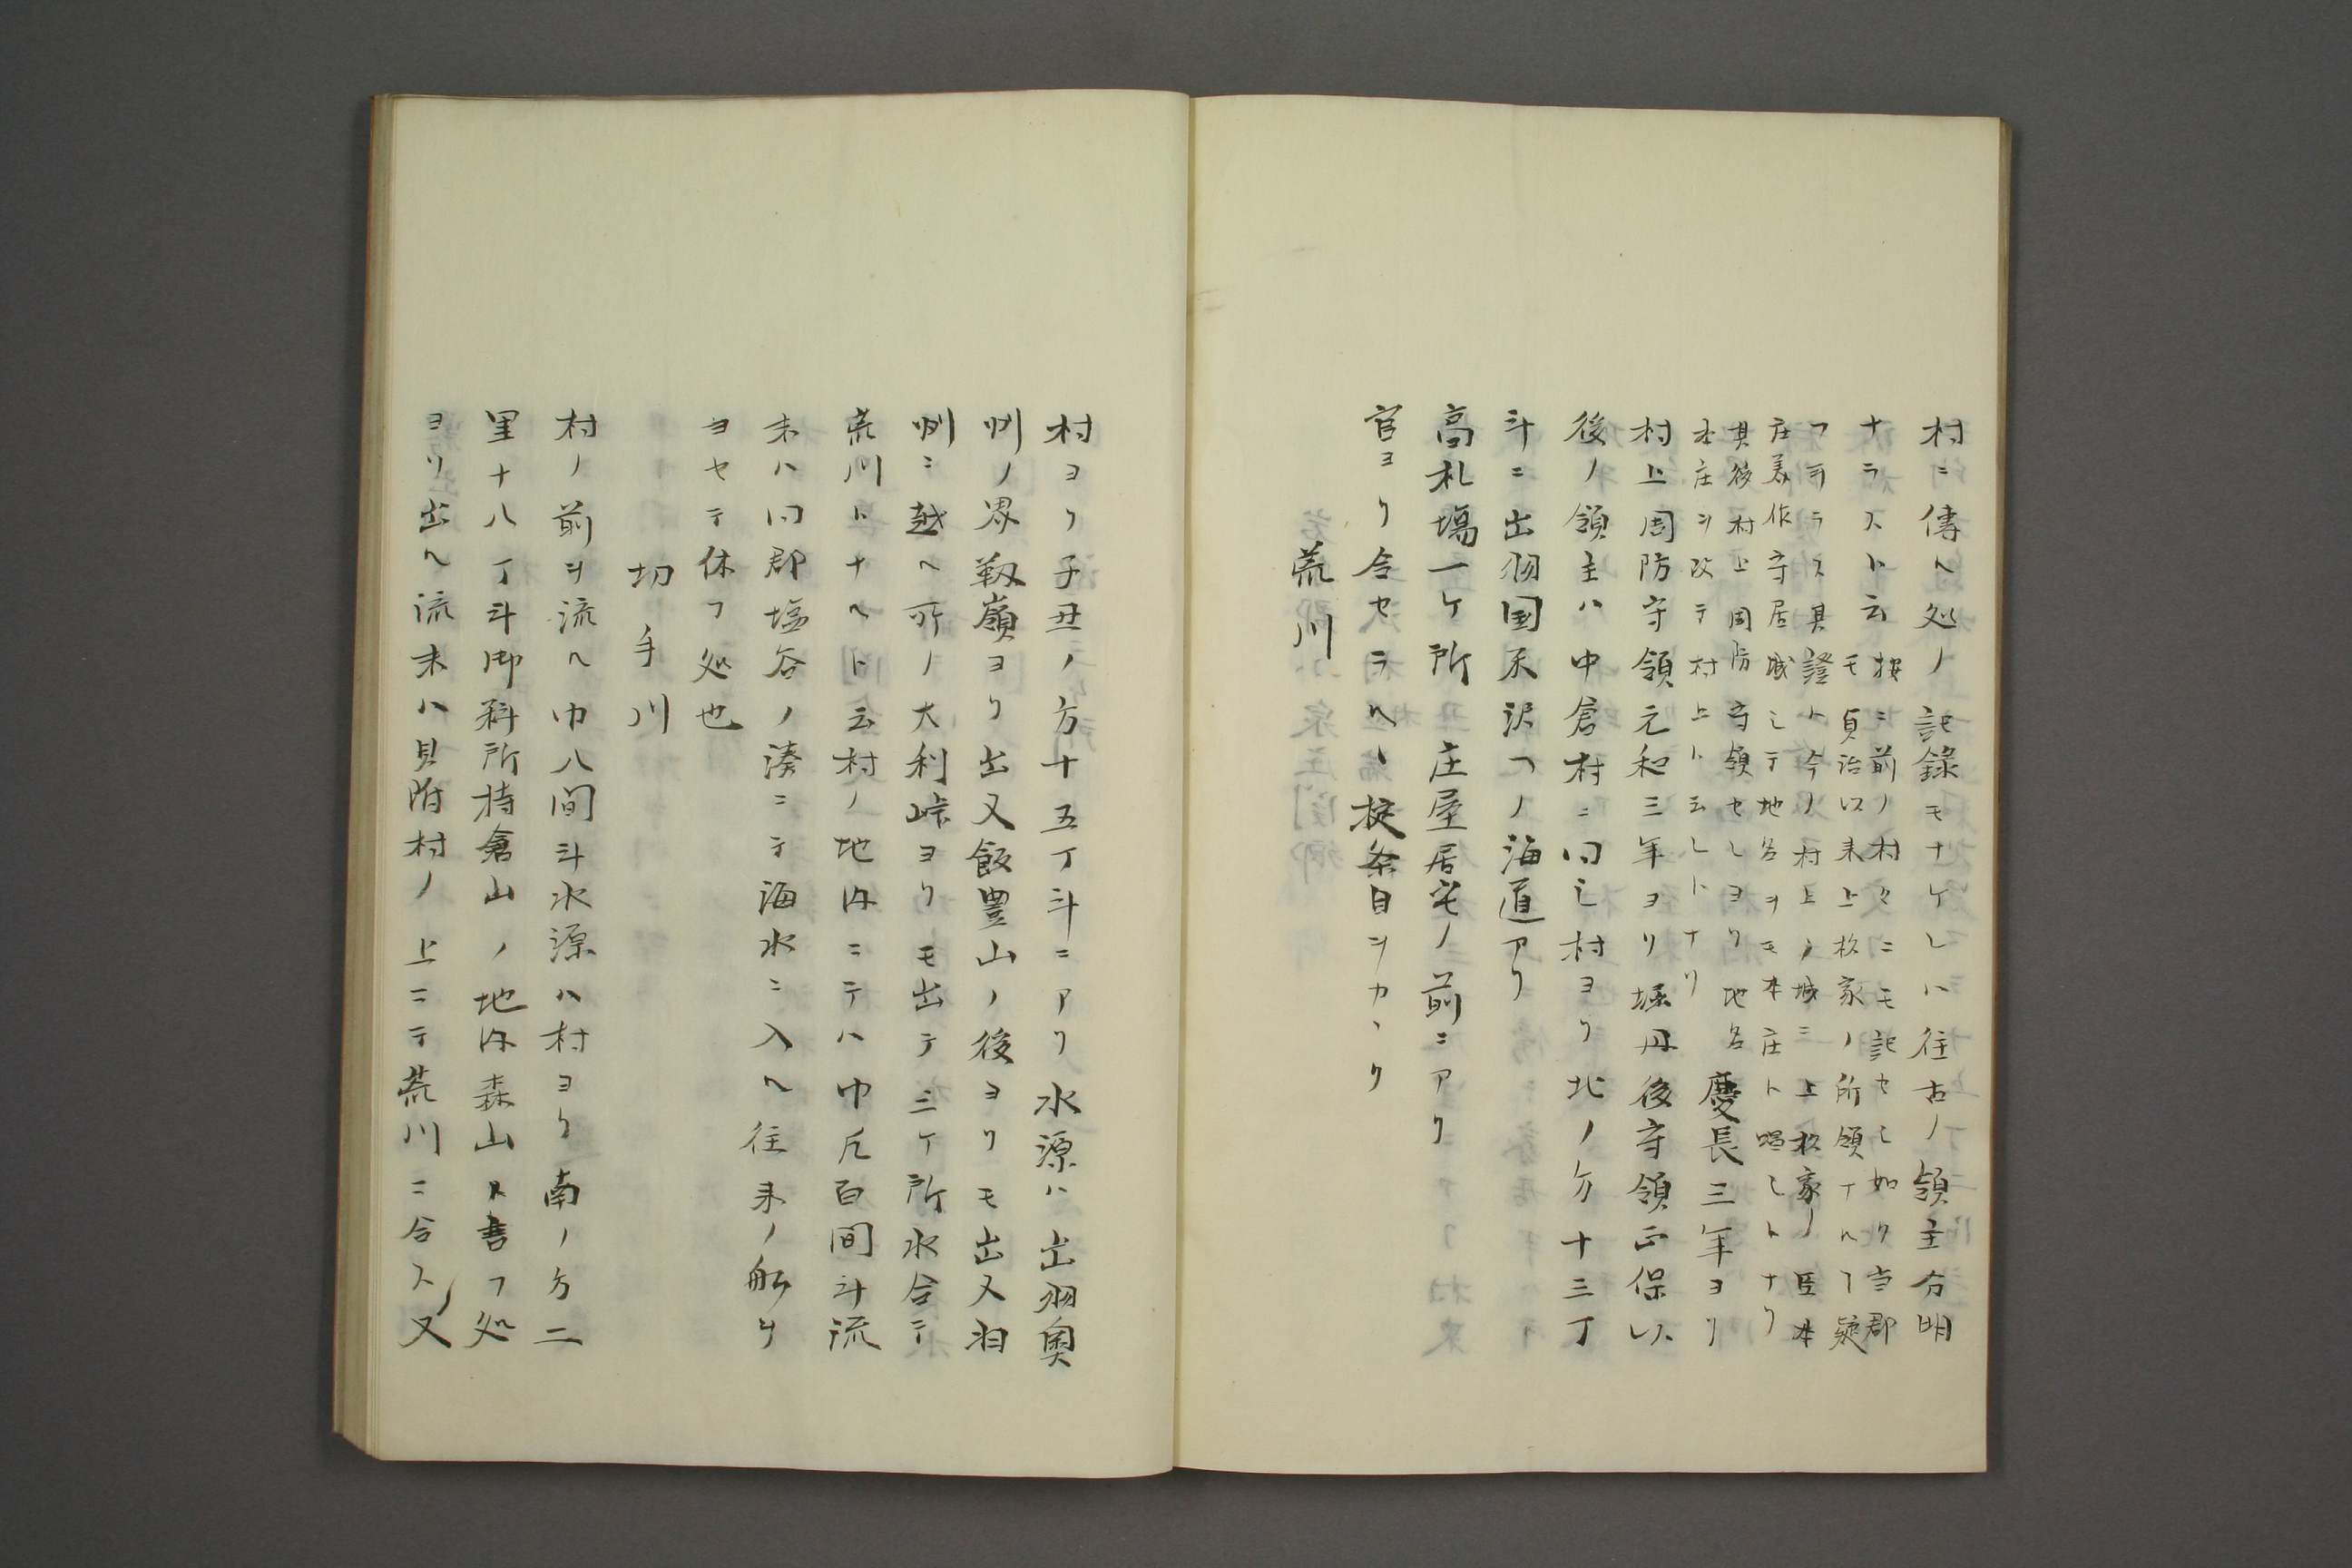 村ニ傳ヘ処ノ記錄モナケレハ往古ノ領主分明
ナラスト云 按ニ前ノ村々ニモ記セシ如ク当郡
モ貞治以来上杦家ノ所領ナルヿ疑
フヲラス其證ハ今ノ村上ノ城ニ上杦家ノ臣本
庄美作守居城シテ地名ヲモ本庄ト唱シトナリ
其後村上周防守領セシヨリ地名
本庄ヲ改テ村上ト云シトナリ 慶長三年ヨリ
村上周防守領元和三年ヨリ堀丹後守領正保以
後ノ領主ハ中倉村ニ同シ村ヨリ北ノ方十三丁
斗ニ出羽国米沢ヘノ海道アリ
高札場一ケ所 庄屋居宅ノ前ニアリ
官ヨリ令セラヘヽ掟条目ヲカヽク
荒川
村ヨリ子丑ノ方十五丁斗ニアリ水源ハ出羽奥
州ノ界靱嶺ヨリ出又飯豊山ノ後ヨリモ出又羽
州ニ越ヘ所ノ大利峠ヨリモ出テ三ケ所水合テ
荒川トナヘト云村ノ地内ニテハ巾凡百間斗流
末ハ同郡塩谷ノ湊ニテ海水ニ入ヘ往来ノ船ハ
ヨセテ休フ処也
切手川
村ノ前ヲ流ヘ巾八間斗水源ハ村ヨリ南ノ方二
里十八丁斗御料所持倉山ノ地内森山ト書フ処
ヨリ出ヘ流末ハ貝附村ノ上ニテ荒川ニ合ス又